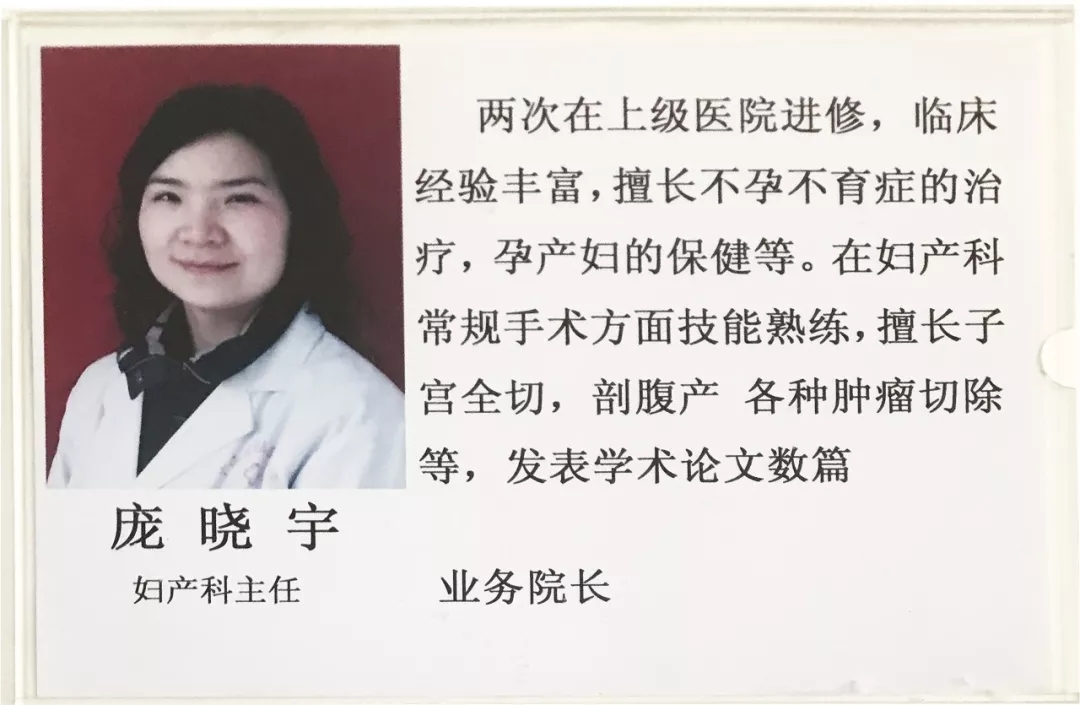 两次在上级医院进修，临床
经验丰富，擅长不孕不育症的治
疗，孕产妇的保健等。在妇产科
常规手术方面技能熟练，擅长子
宫全切，剖腹产 各种肿瘤切除
等，发表学术论文数篇
庞 晓 宇
妇产科主任
业务院长